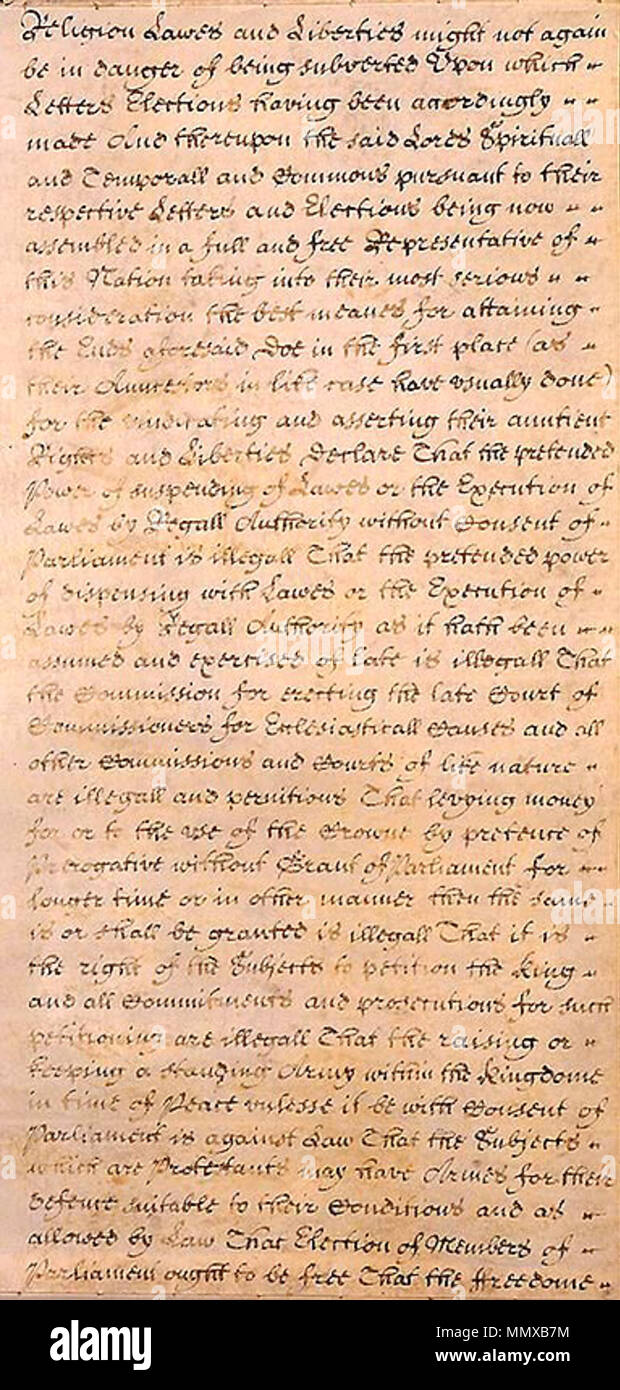 Religion Lawes and Liberties might not again
be in danger of being subverted Upon which
Letters Elections having been accordingly
made And thereupon the said Lords Spirituall
and Temporall and Commons pursuant to their
respective Letters and Elections being now
assembled in a full and free Representative of
this Nation taking into their most serious
consideration the best meanes for attaining
the Ends aforesaid Doe in the first place (as
their Auncestors in like case have usually done)
for the vindicating and asserting their auntient
Rights and Liberties Declare That the pretended
Power of suspending of Lawes or the Execution of
Lawes by Regall Authority without Consent of
Parliament is illegall That the pretended power
of dispensing with Lawes or the Execution of
Lawes by Regall Authority as it hath been
assumed and exercised of late is illegall That
the Commission for erecting the late Court of
Commissioners for Ecclesiasticall Causes and all
other Commissions and Courts of like nature
are illegall and pernitious That levying money
for or to the use of the Crowne by pretence of
Prerogative without Grant of Parliament for
longer time or in other manner then the same
is or shall be granted is illegall That it is
the right of the Subjects to petition the King
and all Commitments and prosecutions for such
petitioning are illegall That the raising or
keeping a standing Army within the Kingdome
in time of Peace vnlesse it be with Consent of
Parliament is against Law That the Subjects
which are Protestants may have Armes for their
defence suitable to their Conditions and as
allowed by Law That Election of Members of
Parliament ought to be free That the ffreedome
alamy
Image ID: MMXB7M
www.alamy.com